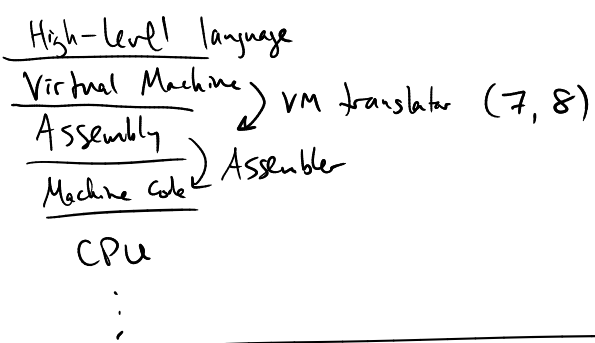 High-level language
Virtual Machine
VM translator (7, 8)
Assembly
Assembler
Machine Code
CPU